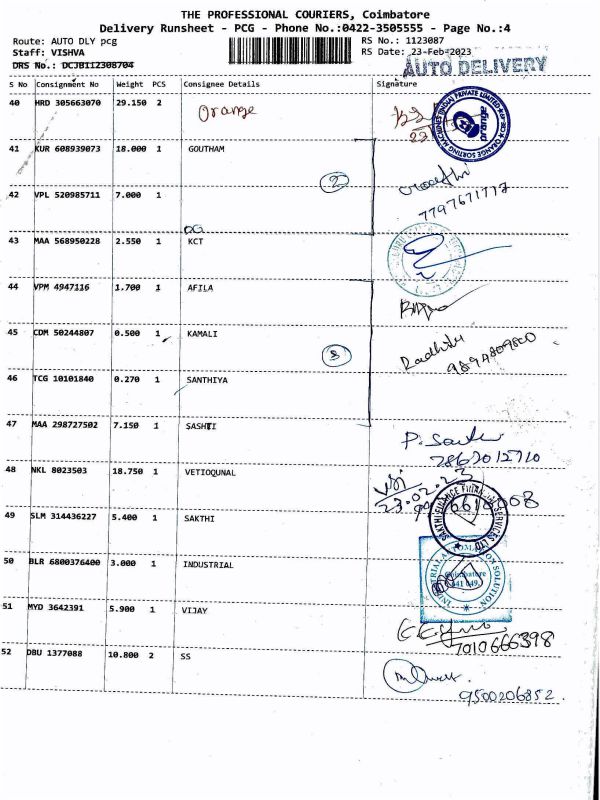 THE PROFESSIONAL COURIERS, Coimbatore
Delivery Runsheet - PCG - Phone No.:0422-3505555 - Page No.:4
Route: AUTO DLY pcg RS No.: 1123087
Staff: VISHVA RS Date: 23-Feb-2023
DRS No.: DCJB112308704 AUTO DELIVERY
S No Consignment No Weight PCS Consignee Details Signature
40 HRD 305663070 29.150 2 Orange
ORANGE SORTING MACHINES (INDIA) PRIVATE LIMITED
orange
41 KUR 608939073 18.000 1 GOUTHAM
2
42 VPL 520985711 7.000 1
7797671717
43 MAA 568950228 2.550 1 KCT
44 VPM 4947116 1.700 1 AFILA
45 CDM 50244807 0.500 1 KAMALI
Radhika
9894809800
46 TCG 10101840 0.270 1 SANTHIYA
47 MAA 298727502 7.150 1 SASHTI
48 NKL 8023503 18.750 1 VETIOQUNAL
23.02.23
49 SLM 314436227 5.400 1 SAKTHI
SAKTHI FINANCE FINANCIAL SERVICES LTD
50 BLR 6800376400 3.000 1 INDUSTRIAL
Coimbatore
641 049
51 MYD 3642391 5.900 1 VIJAY
7010666398
52 DBU 1377088 10.800 2 SS
9500206852.